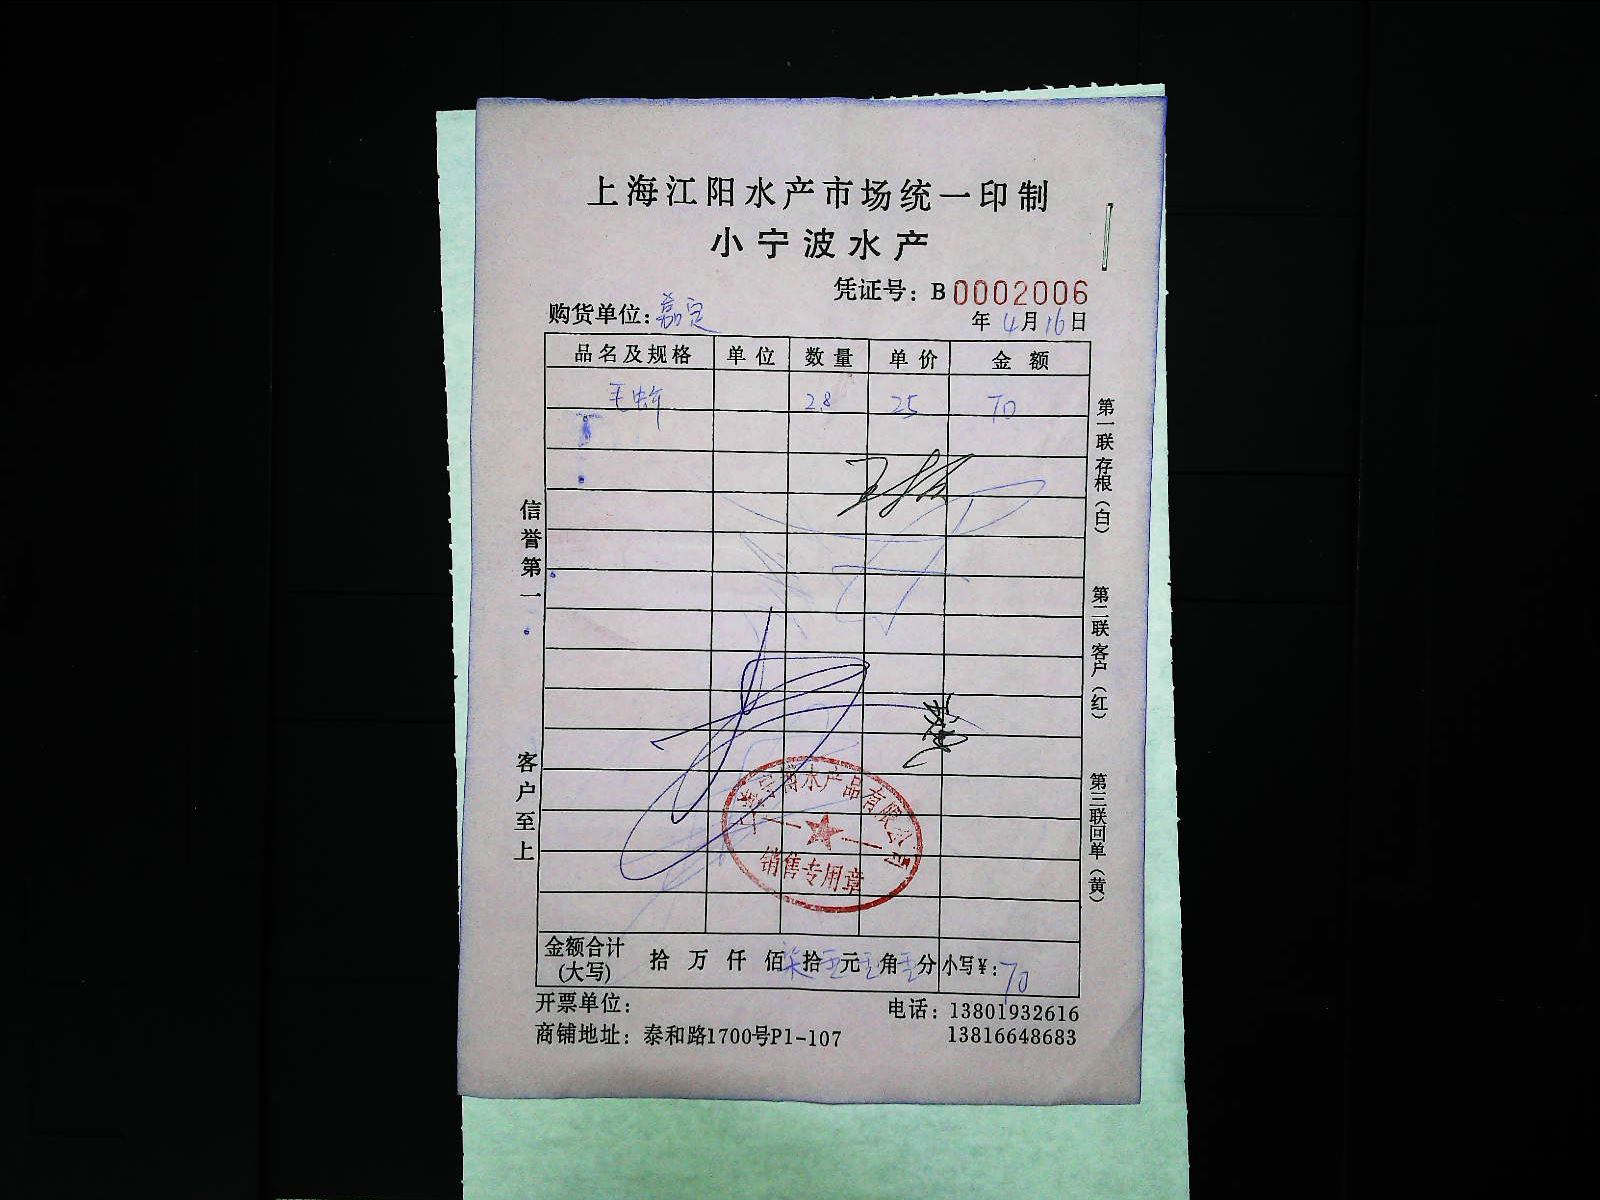 上海江阳水产市场统一印制
小宁波水产
凭证号：B0002006
购货单位：嘉定
年4月16日
品名及规格 单位 数量 单价 金额
毛蚶 2.8 25 70
信誉第一
客户至上
第一联 存根（白）
第二联 客户（红）
第三联 回单（黄）
水产品有限公司
销售专用章
金额合计(大写) 拾 万 仟 佰 柒拾 元 角 分 小写¥：70
开票单位：
电话：13801932616
商铺地址：泰和路1700号P1-107
13816648683